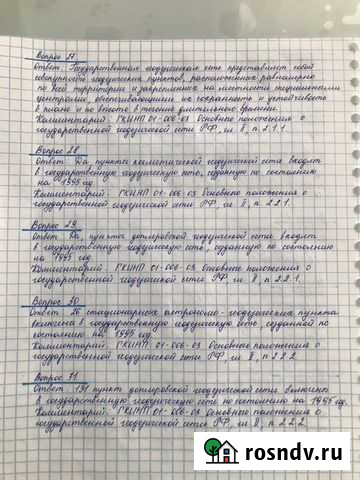 Вопрос 27
Ответ: Государственная геодезическая сеть представляет собой
совокупность геодезических пунктов, расположенных равномерно
по всей территории и закрепленных на местности специальными
центрами, обеспечивающими их сохранность и устойчивость
в плане и по высоте в течение длительного времени.
Комментарий: ГКИНП 01-006-03 Основные положения о
государственной геодезической сети РФ, гл. II, п. 2.1.1.
Вопрос 28
Ответ: Да, пункты космической геодезической сети входят
в государственную геодезическую сеть, созданную по состоянию
на 1995 год.
Комментарий: ГКИНП 01-006-03 Основные положения о
государственной геодезической сети РФ, гл. II, п. 2.2.1.
Вопрос 29
Ответ: Да, пункты доплеровской геодезической сети входят
в государственную геодезическую сеть, созданную по состоянию
на 1995 год.
Комментарий: ГКИНП 01-006-03 Основные положения о
государственной геодезической сети РФ, гл. II, п. 2.2.1.
Вопрос 30
Ответ: 26 стационарных астрономо-геодезических пункта
включена в государственную геодезическую сеть, созданной по
состоянию на 1995 год.
Комментарий: ГКИНП 01-006-03 Основные положения о
государственной геодезической сети РФ, гл. II, п. 2.2.2.
Вопрос 31
Ответ: 131 пункт доплеровской геодезической сети включено
в государственную геодезическую сеть по состоянию на 1995 год.
Комментарий: ГКИНП 01-006-03 Основные положения о
государственной геодезической сети РФ, гл. II, п. 2.2.2.
rosndv.ru